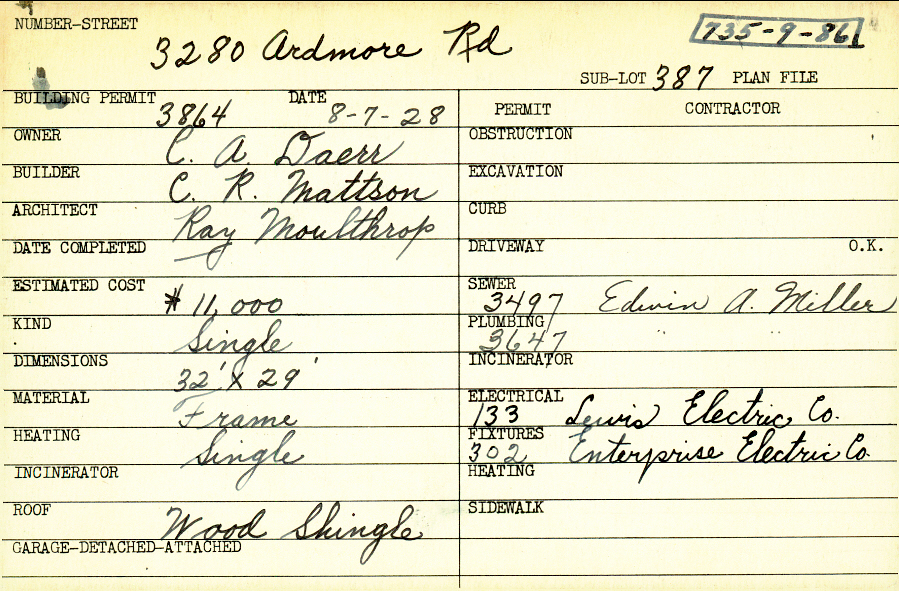 NUMBER-STREET 3280 Ardmore Rd
735-9-86
SUB-LOT 387 PLAN FILE
BUILDING PERMIT 3864 DATE 8-7-28
OWNER C. A. Daerr
BUILDER C. R. Mattson
ARCHITECT Ray Moulthrop
DATE COMPLETED
ESTIMATED COST $ 11,000
KIND Single
DIMENSIONS 32' x 29'
MATERIAL Frame
HEATING Single
INCINERATOR
ROOF Wood Shingle
GARAGE-DETACHED-ATTACHED
PERMIT CONTRACTOR
OBSTRUCTION
EXCAVATION
CURB
DRIVEWAY O.K.
SEWER 3497 Edwin A. Miller
PLUMBING 3647 " "
INCINERATOR
ELECTRICAL 133 Lewis Electric Co.
FIXTURES 302 Enterprise Electric Co.
HEATING
SIDEWALK